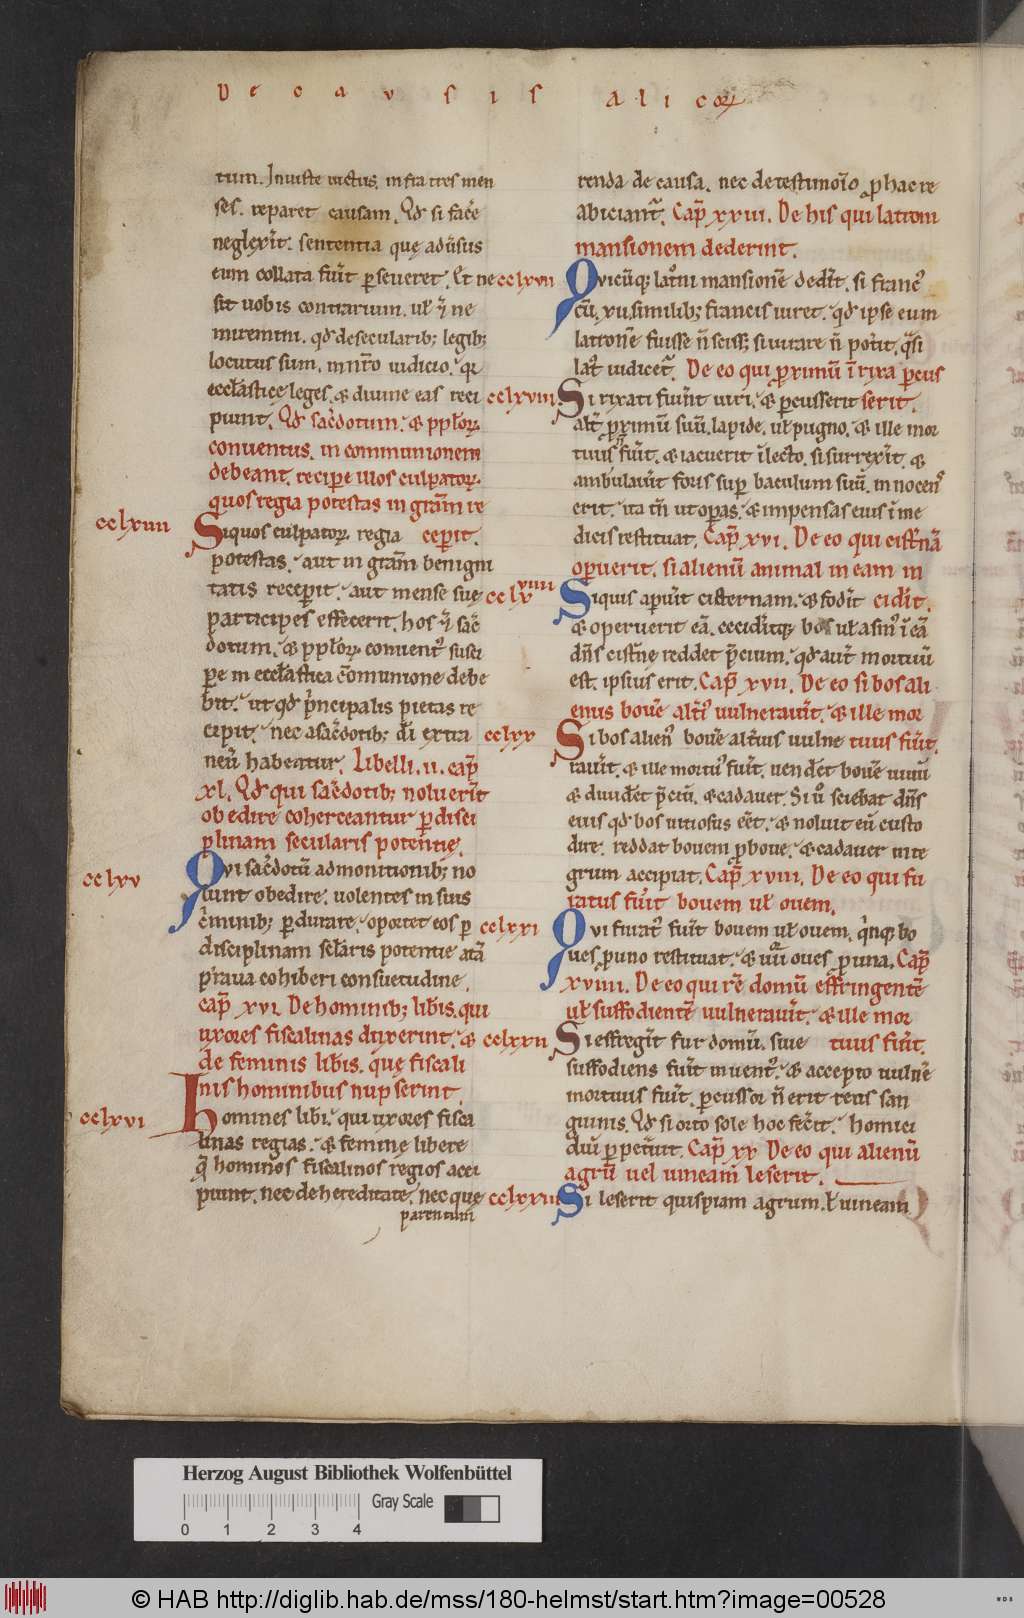 De causis alicor
tum. Iniuste victus. infra tres men
ses. reparet causam. Qd si face
neglexit. sententia quę adusus
eum collata fuit pseueret. Et ne
sit uobis contrarium. ul ne
miremini. qd desecularib; legib;
locutus sum. in nro iudicio. qr
ecclasticę leges. & diuine eas reci
piunt. Qd sacdotum. & pplor
conuentus. in communionem
debeant. recipere illos culpator.
quos regia potestas in gram re
cclxiiii
Siquos culpator. regia ceperit.
potestas. aut in gram benigni
tatis receperit. aut mense sue
participes effecerit. hos sac
dotum. & pplor. conuent susci
pe in ecclastica comunione debe
bit. ut qd principalis pietas re
cipit. nec a sacdotib; di extra
neu habeatur. Libelli. ii. cap
xl. Qd qui sacdotib; noluerit
obedire coherceantur p disci
plinam secularis potentię.
cclxv
Qvi sacdotu admonitionib; no
lunt obedire. uolentes in suis
criminib; pdurare. oportet eos p
disciplinam sclaris potentie ata
praua cohiberi consuetudine.
cap xvi. De hominib; libis. qui
uxores fiscalinas duxerint. &
de feminis libis. quę fiscali
nis hominibus nupserint.
cclxvi
Homines libi. qui uxores fisca
linas regias. & femine libere
q homines fiscalinos regios acci
piunt. nec de hereditate. nec que
parentum
renda de causa. nec de testimonio phac re
abiciant. Cap xxiii. De his qui latroni
mansionem dederint.
cclxvii
Qvicuq; latroni mansione dedit. si franc
cu. xii. similib; francis iuret. qd ipse eum
latrone fuisse n sciss; si iurare n potit. qsi
latr iudicet. De eo qui pximu i rixa pcus
cclxviii
Si rixati fuerint uiri. & pcusserit serit.
alt pximu suu. lapide. ul pugno. & ille mor
tuus fuit. & iacuerit i lecto. si surrexit. &
ambulauit foris sup baculum suu. innocens
erit. ita tn ut opas. & impensas eius i me
dicis restituat. Cap xvi. De eo qui cistna
operuerit. si alienu animal in eam in
cclxviiii
Siquis apuit cisternam. & fodit cidit.
& operuerit ea. cecidritq; bos ul asin i ea
dns cistne reddet pcium. qd aut mortuu
est. ipsius erit. Cap xvii. De eo si bos ali
enus boue alti uulnerauit. & ille mor
cclxx
Si bos alien boue altius uulne tuus fuit.
rauit. & ille mortu fuit. uendet boue uiuu
& diuidet pciu. & cadauer. Si u sciebat dns
eius qd bos uitiosus eet. & noluit eu custo
dire. reddat bouem pboue. & cadauer inte
grum accipiat. Cap xviii. De eo qui fu
ratus fuit bouem ul ouem.
cclxxi
Qvi furat fuit bouem ul ouem. qinq; bo
ues p uno restituat. & iiii oues p una. Cap
xviiii. De eo qui re domu effringente
ul suffodiente uulnerauit. & ille mor
cclxxii
Si effregit fur domu. siue tuus fuit.
suffodiens fuit inuent. & accepto uulne
mortuus fuit. pcussor n erit reus san
guinis. Qd si orto sole hoc fecit. homici
diu ppetuit. Cap xx De eo qui alienu
agru uel uineam leserit.
cclxxiii
Si leserit quispiam agrum. ł uineam
Herzog August Bibliothek Wolfenbüttel
Gray Scale
0 1 2 3 4
© HAB http://diglib.hab.de/mss/180-helmst/start.htm?image=00528